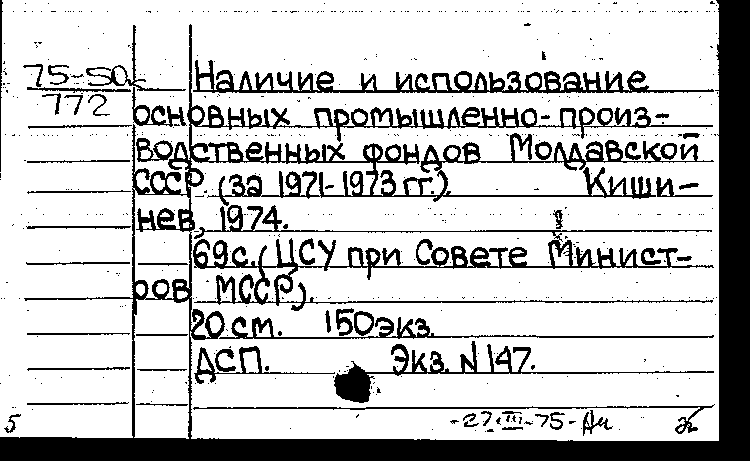 75-50
772
Наличие и использование
основных промышленно-произ-
водственных фондов Молдавской
СССР (за 1971-1973 гг.). Киши-
нев, 1974.
69с. (ЦСУ при Совете Минист-
ров МССР).
20 см. 150 экз.
ДСП. Экз. N 147.
5 -27.III-75-